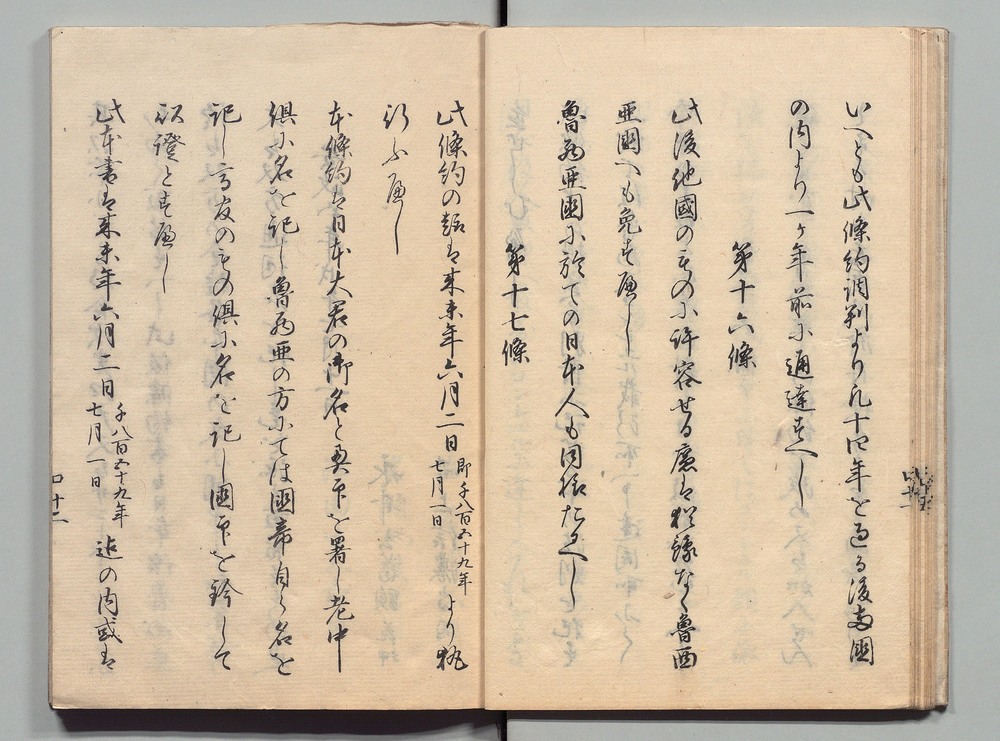 いへとも此條約調判より凡十四年を過る後両國
の内より一ケ年前に通達すへし
第十六條
此後他國のものに許容せる廉は猶豫なく魯西
亜國へも免すへし
魯西亜國に於ての日本人も同様たるへし
第十七條
此條約の趣は来未年六月二日即千八百五十九年七月一日より執
行ふへし
本條約は日本大君の御名と奥印を署し老中
倶に名を記し魯西亜の方にては國帝自ら名を
記し高友のもの倶に名を記し國印を鈐して
以證とすへし
此本書は来未年六月二日千八百五十九年七月一日迄の内或は
口十二